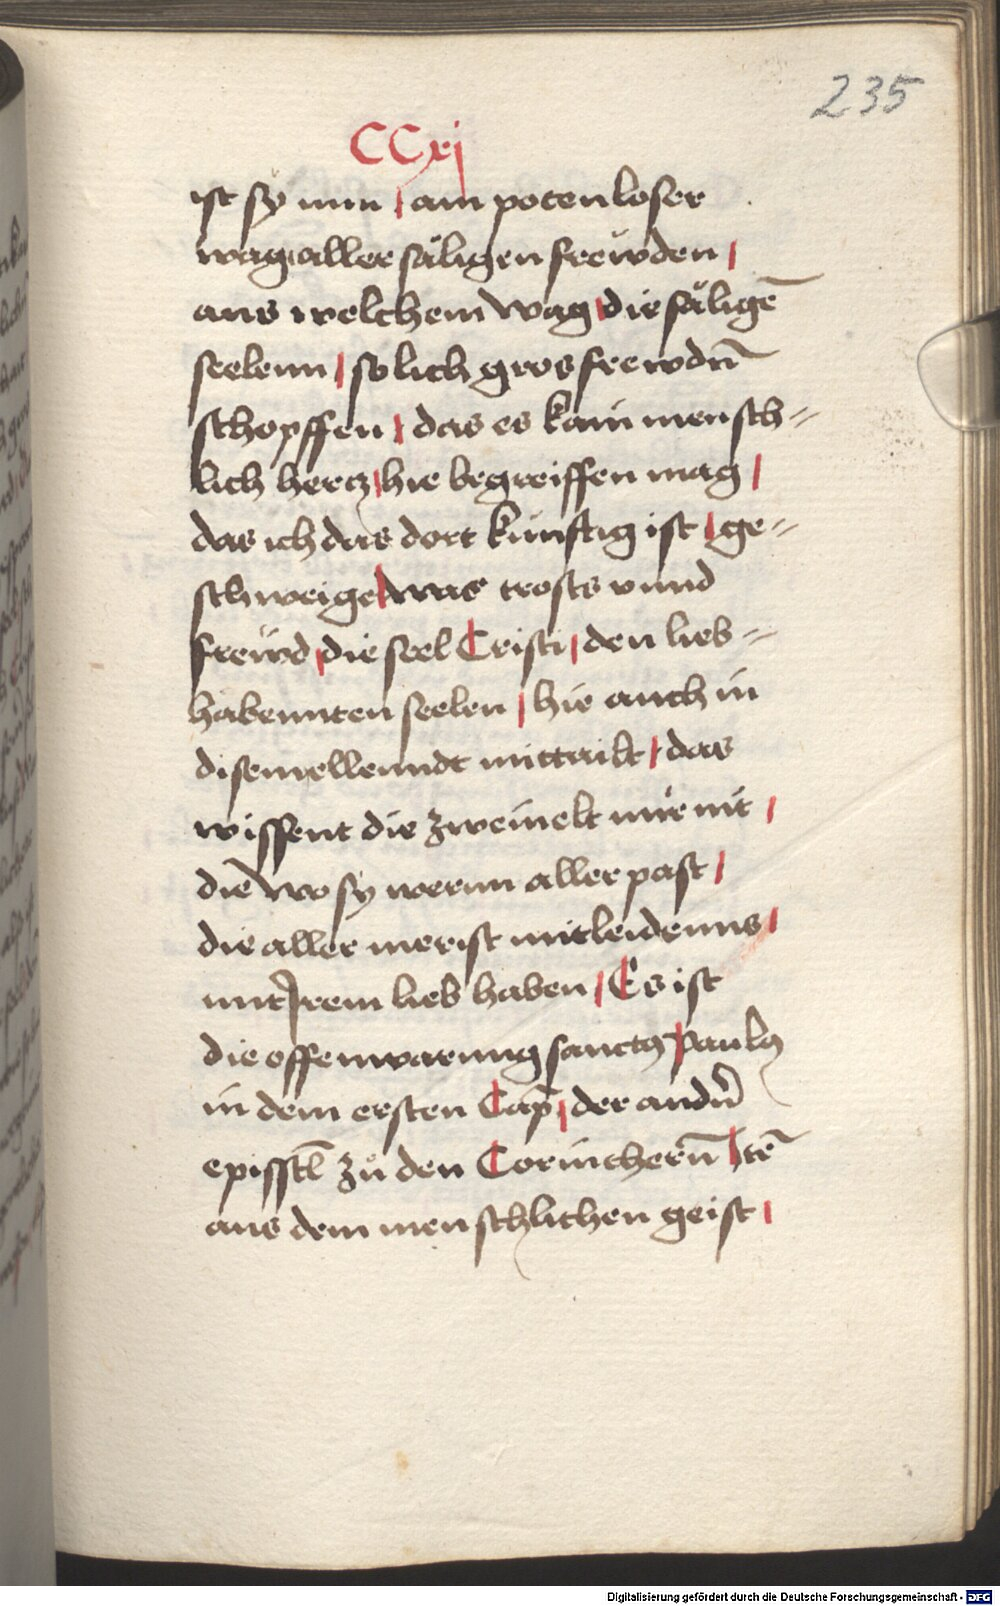 235
CCxj
ist sy nun | ain potenloser
wag aller säligen frewden |
aus welchem wag | die säligē
seelenn | solich gros frewdn̄
schopffen | das es kain mensch=
lich hercz | hie begreiffen mag |
das ich das dort kunftig ist | ge=
schweige | was trosts vnnd
frewd | die seel Cristi | den lieb=
habennten seelen | hie auch in
disem ellenndt mittailt | das
wissent die zweinelt nur nit |
die wo sy wernn aller past |
die aller merist mitleidenns |
mit Irem lieb haben | Es ist
die offenwarung sanctus Paulus
in dem ersten Cap̄ | der andn̄
episstl zů den Corinthern̄ |
aus dem menschlichen geist |
Digitalisierung gefördert durch die Deutsche Forschungsgemeinschaft - DFG